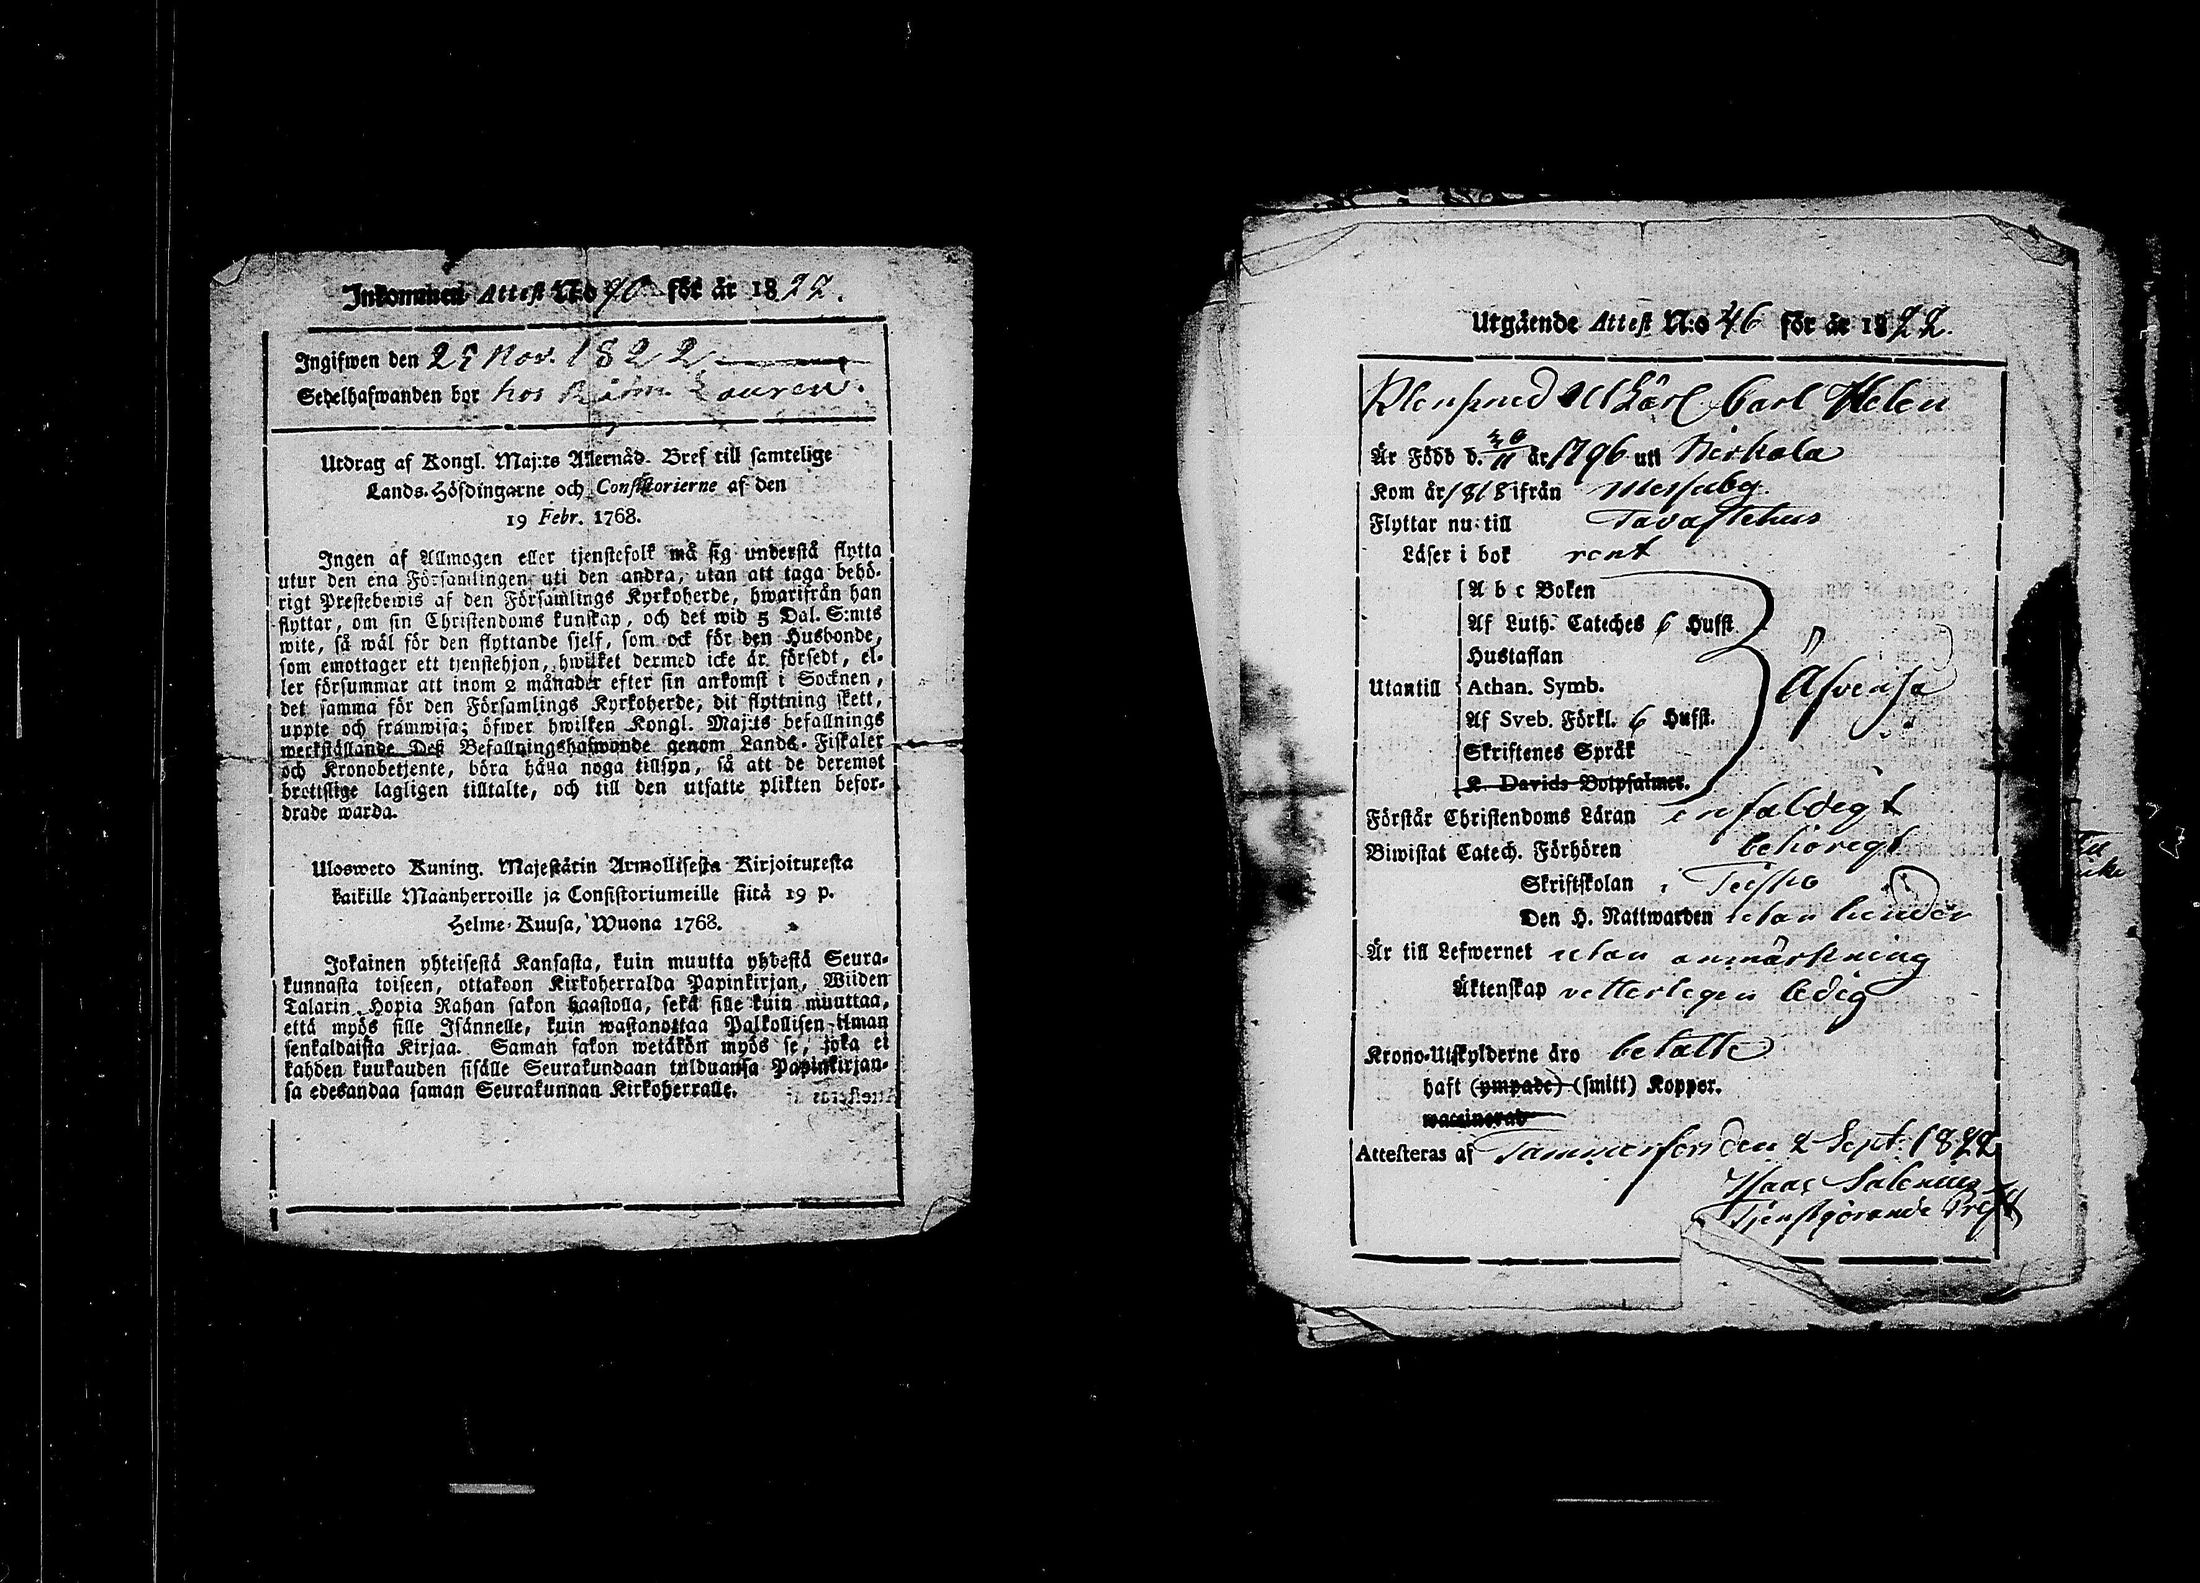 Inkommen Attest N:o 90 för år 1822.
Ingifwen den 29 Nov. 1822
Sedelhafwanden bor hos Lauren.
Utdrag af Kongl. Maj:ts Allernåd. Bref till samtelige
Lands-Höfdingarne och Consistorierne af den
19 Febr. 1768.
Ingen af Allmogen eller tjenstefolk må sig understå flytta
utur den ena Församlingen uti den andra, utan att taga behö-
rigt Prestebewis af den Församlings Kyrkoherde, hwarifrån han
flyttar, om sin Christendoms kunskap, och det wid 5 Dal. S:mts
wite, så wäl för den flyttande sjelf, som ock för den Husbonde,
som emottager ett tjenstehjon, hwilket dermed icke är försedt, el-
ler försummar att inom 2 månader efter sin ankomst i Socknen,
det samma för den Församlings Kyrkoherde, dit flyttning skett,
uppte och framwisa; öfwer hwilken Kongl. Maj:ts befallnings
werkställande Deß Befallningshafwande genom Lands-Fiskaler
och Kronobetjente, böra hålla noga tillsyn, så att de deremot
brottslige lagligen tilltalte, och till den utsatte plikten befor-
drade warda.
Ulosweto Kuning. Majestätin Armollisesta Kirjoituxesta
kaikille Maanherroille ja Consistoriumeille siitä 19 p.
Helme-Kuusa, Wuona 1768.
Jokainen yhteisestä Kansasta, kuin muutta yhdestä Seura-
kunnasta toiseen, ottakoon Kirkoherralda Papinkirjan, Wiiden
Talarin Hopia Rahan sakon haastolla, sekä sille kuin muuttaa,
että myös sille Isännelle, kuin wastanottaa Palkollisen ilman
senkaldaista Kirjaa. Saman sakon wetäkön myös se, joka ei
kahden kuukauden sisälle Seurakundaan tulduansa Papinkirjan-
sa edesandaa saman Seurakunnan Kirkoherralle.
Utgående Attest N:o 46 för år 1822.
Carl Helen
Är Född d. 26/11 år 1796 uti Birkala
Kom år 1818 ifrån Messuby
Flyttar nu till Tavastehus
Läser i bok rent
A b c Boken
Af Luth. Cateches 6 Hufst.
Hustaflan
Utantill Athan. Symb. Äfvenså
Af Sveb. Förkl. 6 Hufst.
Skriftenes Språk
K. Davids Botpsalmer.
Förstår Christendoms Läran enfaldigt
Biwistat Catech. Förhören behörigt
Skriftskolan i Teisko
Den H. Nattwarden utan hinder
Är till Lefwernet utan anmärkning
Äktenskap vetterligen ledig
Krono-Utskylderne äro betalte
haft (ympade) (smitt) Koppor.
waccinerad
Attesteras af Tammerfors den 2 Sept. 1822
Isaac Salenius
Tjenstgörande Prest